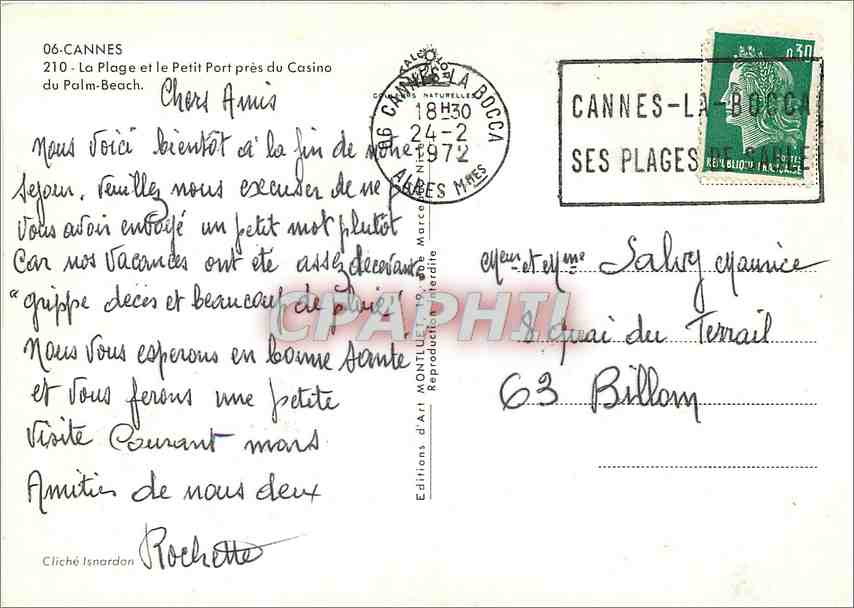 06-CANNES
210 - La Plage et le Petit Port près du Casino
du Palm-Beach.
Chers Amis
Nous Voici bientôt à la fin de notre
Sejour. Veuillez nous excuser de ne pas
Vous avoir envoyé un petit mot plutôt
Car nos Vacances ont été assez decevantes
"grippe décès et beaucoup de pluie"
Nous Vous esperons en bonne Santé
et Vous ferons une petite
Visite Courant mars
Amitiés de nous deux
Rochette
Cliché Isnardon
Editions d'Art MONTLUET, 19, rue Marceau
Reproduction interdite
06 CANNES-LA BOCCA
18H30
24-2
1972
ALPES Mmes
CANNES-LA-BOCCA
SES PLAGES DE SABLE
0,30
POSTES
REPUBLIQUE FRANÇAISE
Meur et Mme Salvy Maurice
8 quai du Terrail
63 Billom
CPAPHIL